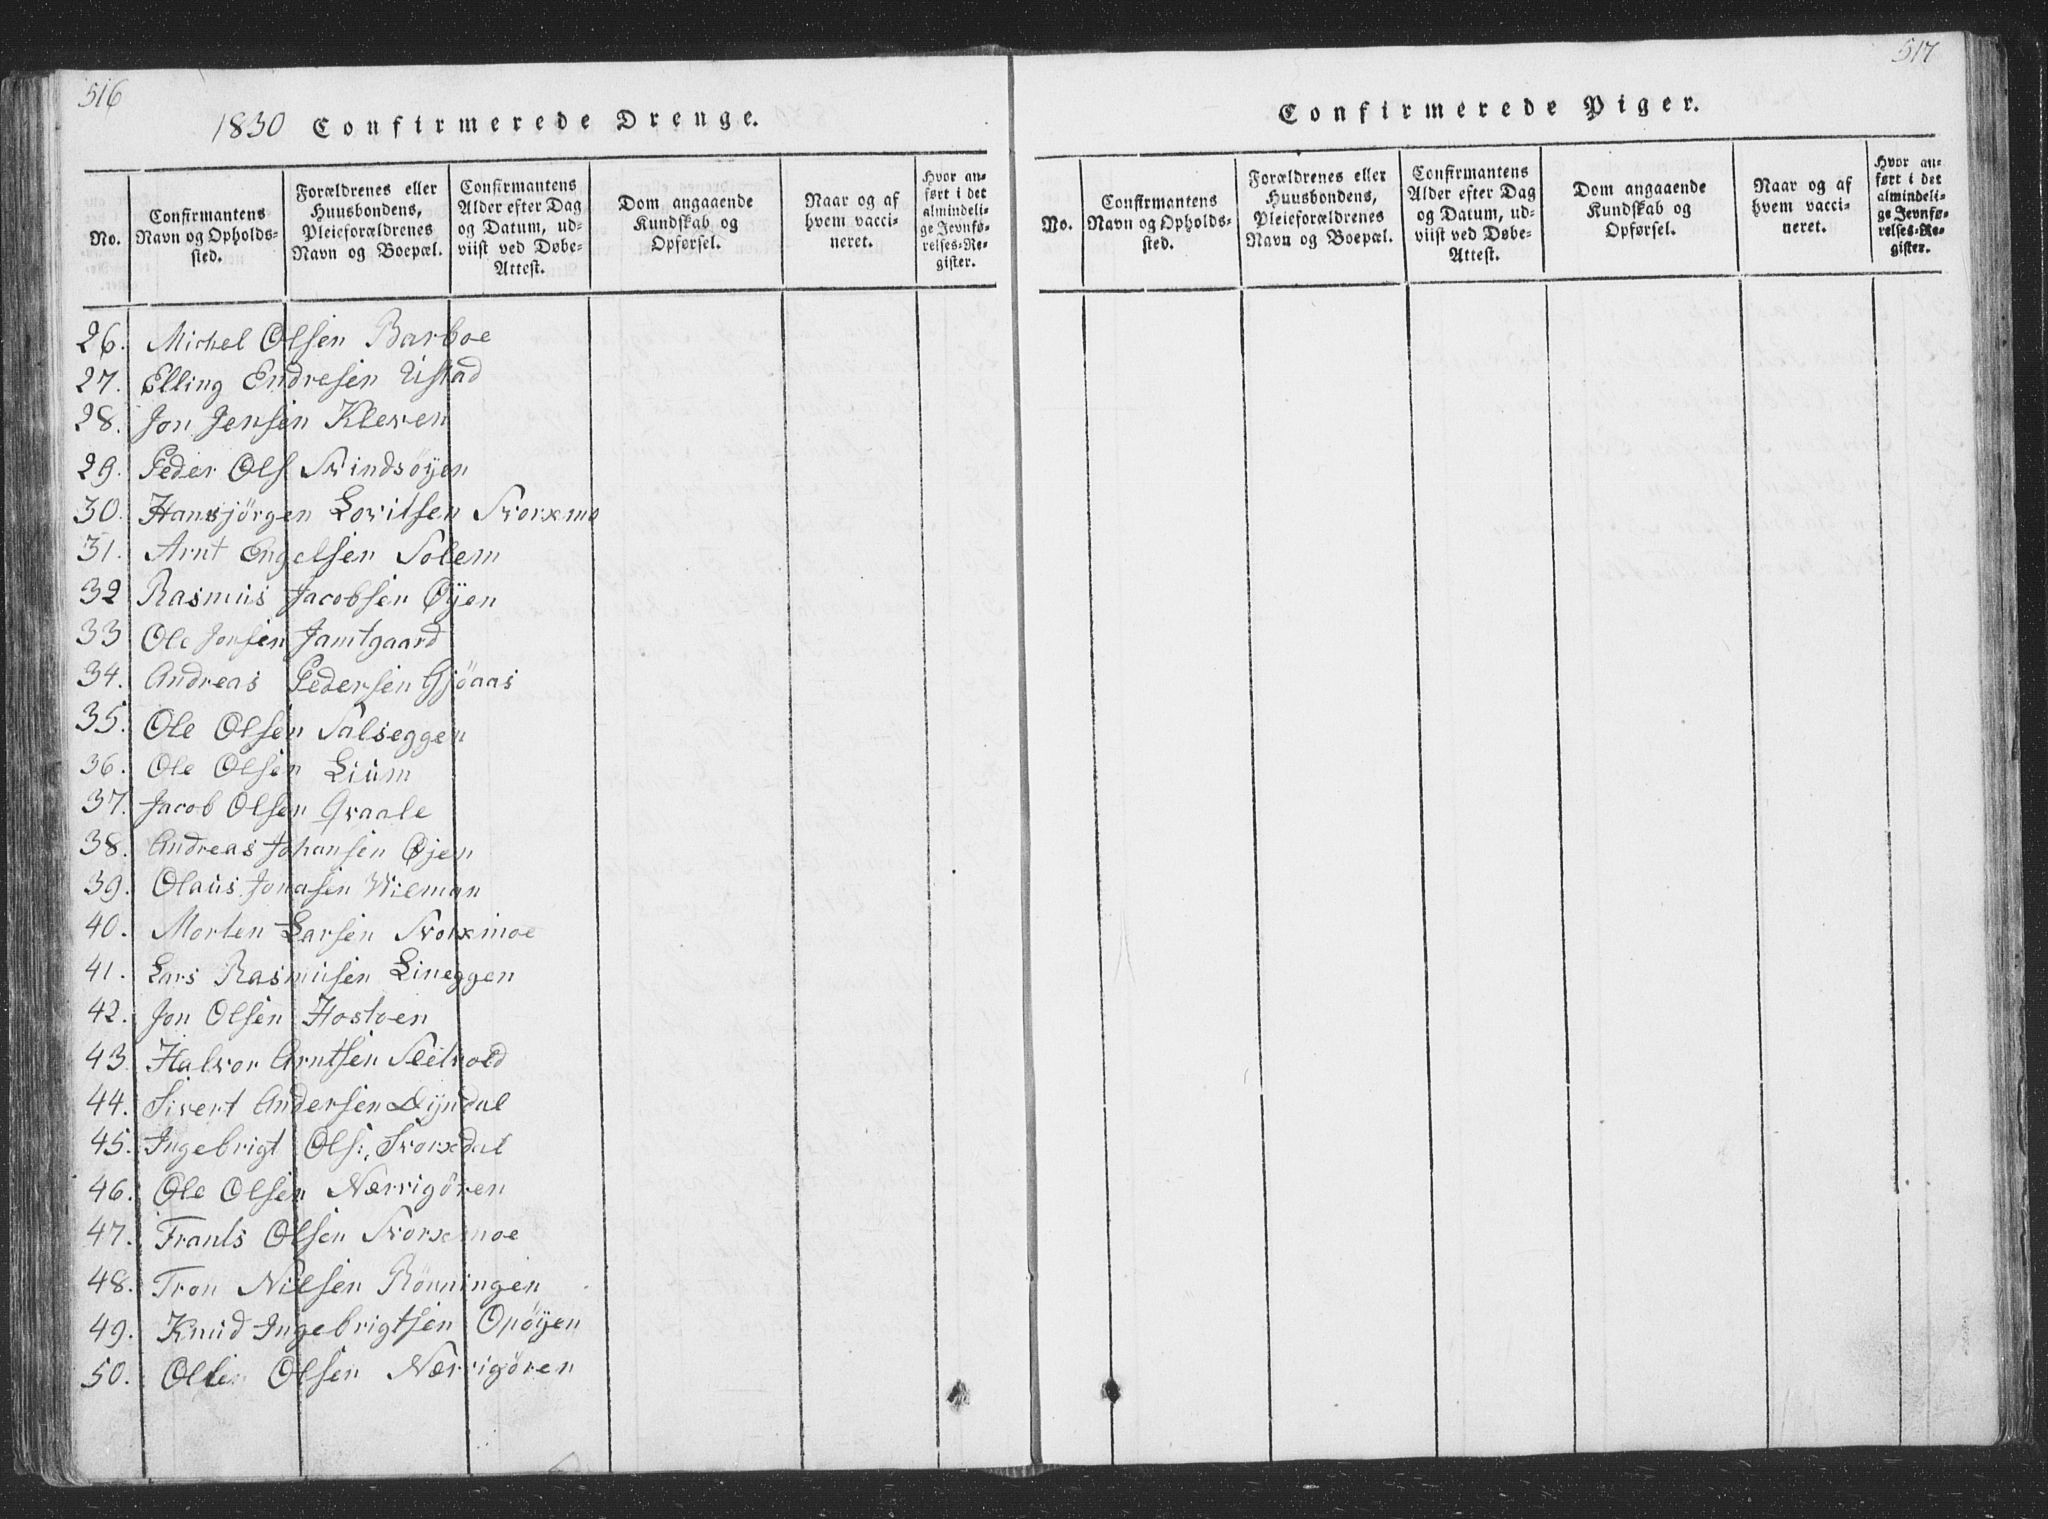 516
1830 Confirmerede Drenge.
No.
Confirmantens Navn og Opholds-sted.
Forældrenes eller Huusbondens, Pleieforældrenes Navn og Boepæl.
Confirmantens Alder efter Dag og Datum, ud-viist ved Døbe-Attest.
Dom angaaende Kundskab og Opførsel.
Naar og af hvem vacci-neret.
Hvor an-ført i det almindeli-ge Jevnfø-relses-Re-gister.
26. Michel Olsen Barboe
27. Elling Endresen Ustad
28. Jon Jensen Kleven
29. Peder Ols Svindsöyen
30. Hansjörgen Lovitsen Svorxmo
31. Arnt Engelsen Solem
32 Rasmus Jacobsen Øyen
33 Ole Jonsen Jamtgaard
34. Andreas Pedersen Gjöaas
35. Ole Olsen Salseggen
36. Ole Olsen Lium
37. Jacob Olsen Qvaale
38. Andreas Johansen Øjen
39. Olaus Jonasen Wieman
40. Morten Larsen Svorxmoe
41. Lars Rasmusen Lineggen
42. Jon Olsen Hostoen
43. Halvor Arntsen Sletvold
44. Sivert Andersen Dyndal
45. Ingebrigt Ols: Svorxdal
46. Ole Olsen Nærvigören
47. Frants Olsen Svorxmoe
48. Tron Nilsen Rönningen
49. Knud Ingebrigtsen Opöyen
50. Olsen Nærvigören
517
Confirmerede Piger.
No.
Confirmantens Navn og Opholds-sted.
Forældrenes eller Huusbondens, Pleieforældrenes Navn og Boepæl.
Confirmantens Alder efter Dag og Datum, ud-viist ved Døbe-Attest.
Dom angaaende Kundskab og Opførsel.
Naar og af hvem vacci-neret.
Hvor an-ført i det almindeli-ge Jevnfø-relses-Re-gister.